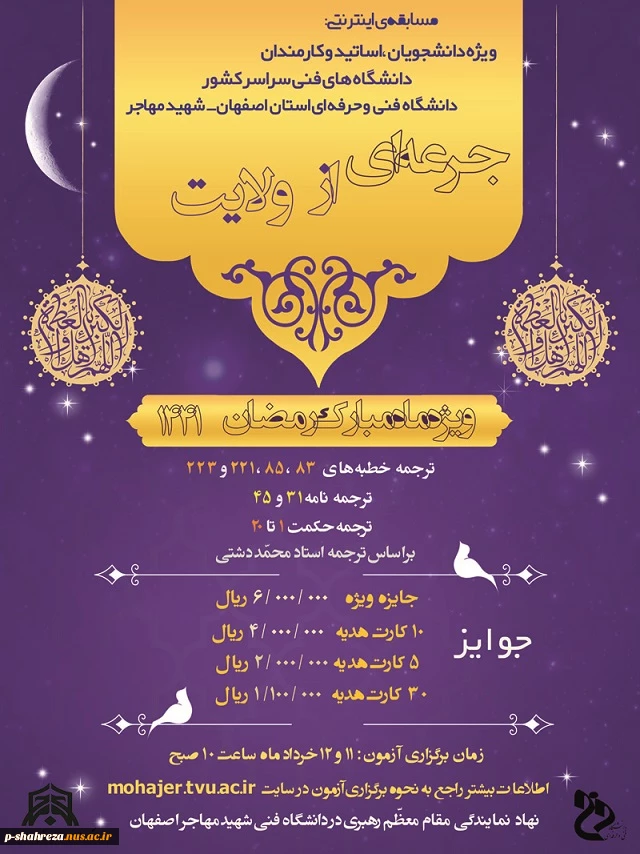 مسابقه‌ی اینترنتی:
ویژه دانشجویان، اساتید و کارمندان
دانشگاه های فنی سراسر کشور
دانشگاه فنی و حرفه ای استان اصفهان - شهید مهاجر
جرعه‌ای از ولایت
ویژه ماه مبارک رمضان ۱۴۴۱
ترجمه خطبه های ۸۳ ، ۸۵ ، ۲۲۱ و ۲۲۳
ترجمه نامه ۳۱ و ۴۵
ترجمه حکمت ۱ تا ۲۰
براساس ترجمه استاد محمّد دشتی
جوایز
جایزه ویژه ۶/۰۰۰/۰۰۰ ریال
۱۰ کارت هدیه ۴/۰۰۰/۰۰۰ ریال
۵ کارت هدیه ۲/۰۰۰/۰۰۰ ریال
۳۰ کارت هدیه ۱/۱۰۰/۰۰۰ ریال
زمان برگزاری آزمون : ۱۱ و ۱۲ خرداد ماه ساعت ۱۰ صبح
اطلاعات بیشتر راجع به نحوه برگزاری آزمون در سایت mohajer.tvu.ac.ir
نهاد نمایندگی مقام معظّم رهبری در دانشگاه فنی شهید مهاجر اصفهان
p-shahreza.nus.ac.ir